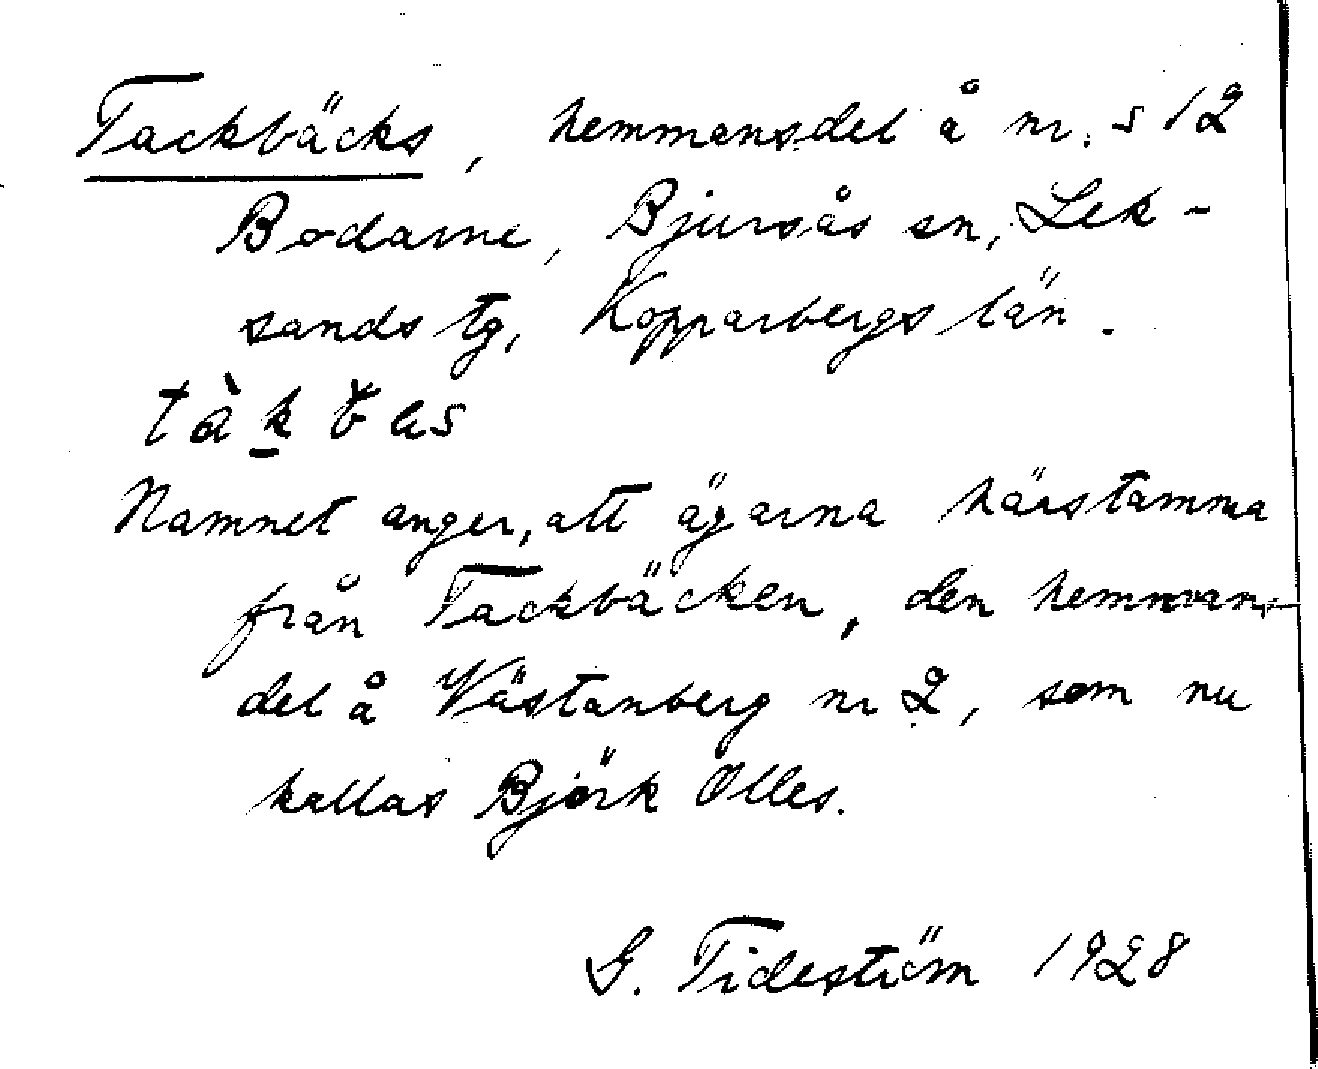 Tackbäcks, hemmansdel å nr. 5 12
Bodarne, Bjursås sn, Lek-
sands tg, Kopparbergs län.
Namnet anger, att ägarna härstamma
från Tackbäcken, den hemmans-
del å Västanberg nr 2, som nu
kallas Björk Olles.
G. Tideström 1928